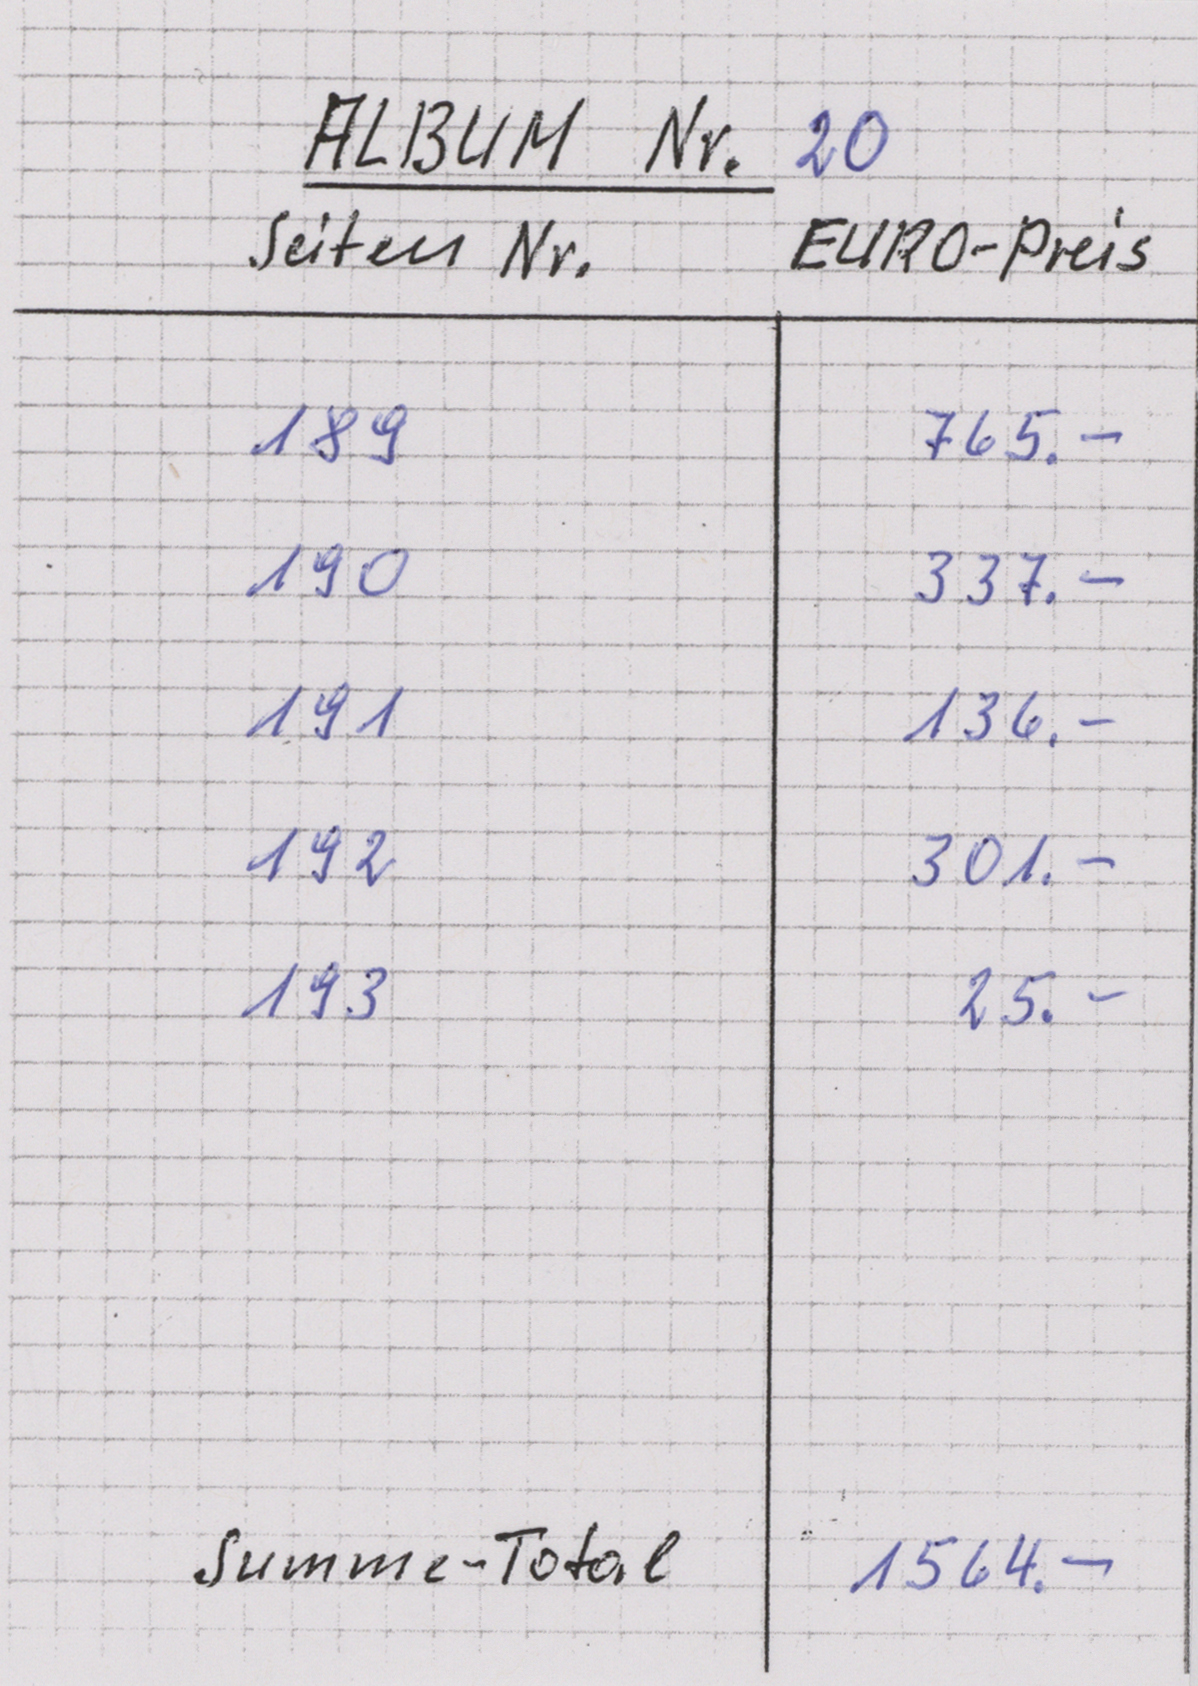 ALBUM Nr. 20
Seiten Nr. EURO-Preis
189 765.-
190 337.-
191 136.-
192 301.-
193 25.-
Summe-Total 1564.-